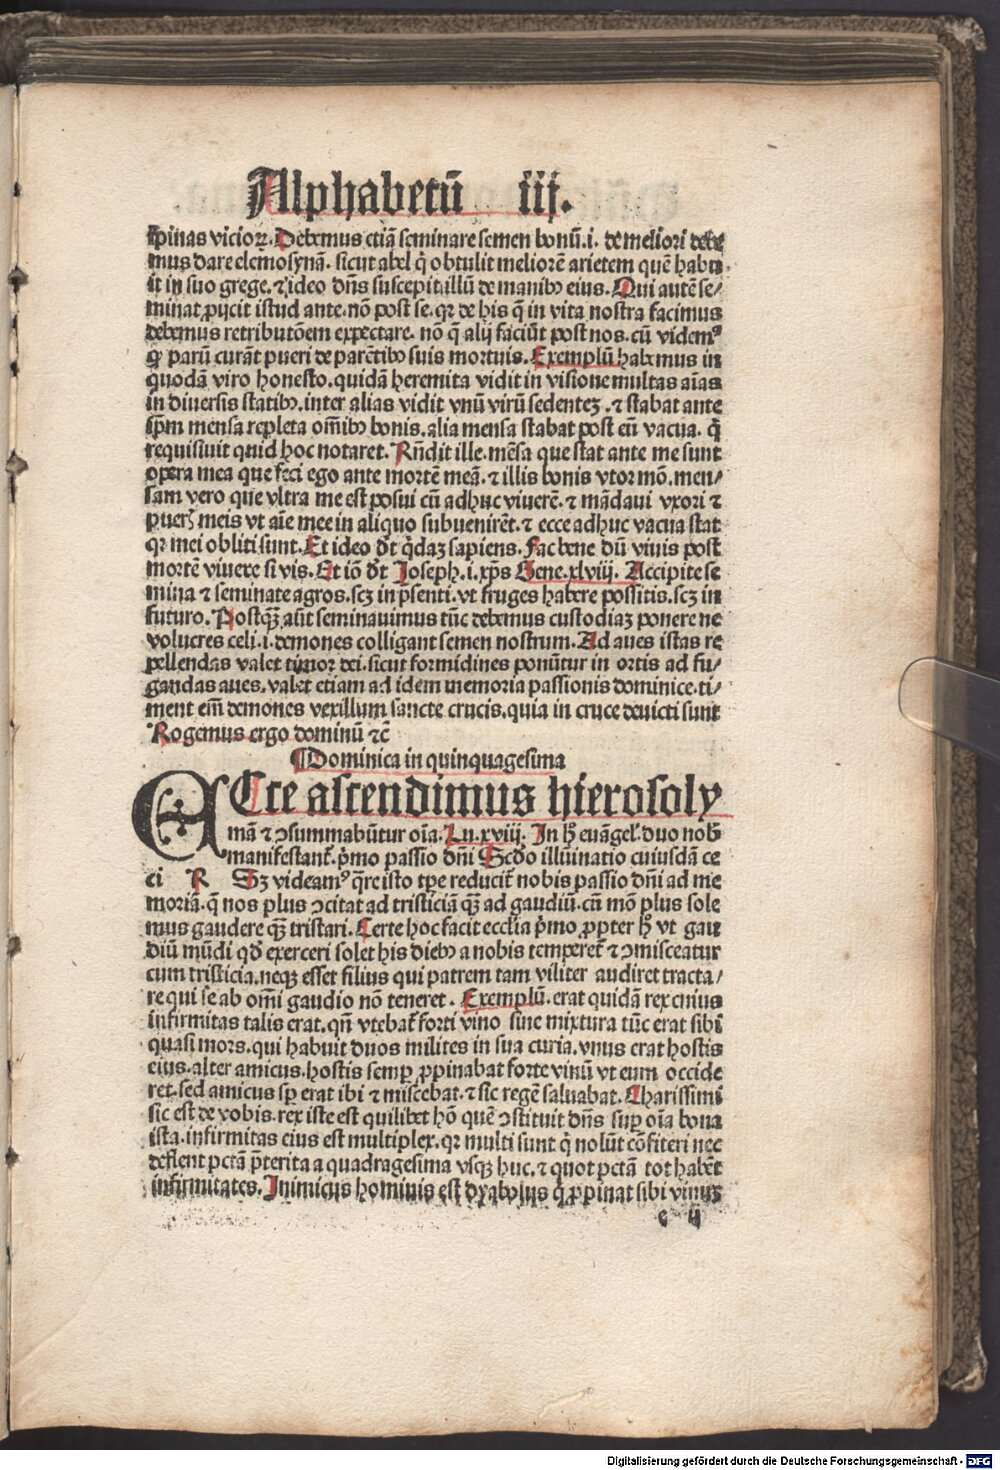 Alphabetū iij.
spinas vicioꝝ. Debemus etiā seminare semen bonū .i. de meliori debe
mus dare elemosynā. sicut abel q̇ obtulit meliorē arietem quē habu
it in suo grege. ⁊ ideo dn̄s suscepit illū de manibꝰ eius. Qui autē se/
minat ꝓijcit istud ante. nō post se. qꝛ de his q̄ in vita nostra facimus
debemus retributōem expectare. nō q̄ alij faciūt post nos. cū videmꝰ
ꝙ parū curāt pueri de parētibꝰ suis mortuis. Exemplū habemus in
quodā viro honesto. quidā heremita vidit in visione multas aīas
in diuersis statibꝰ. inter alias vidit vnū virū sedenteꝫ . ⁊ stabat ante
ip̄m mensa repleta om̄ibꝰ bonis. alia mensa stabat post eū vacua. q̇
requisiuit quid hoc notaret. Rn̄dit ille. mēsa que stat ante me sunt
opera mea que feci ego ante mortē meā. ⁊ illis bonis vtor mō. men/
sam vero que vltra me est posui cū adhuc viuerē. ⁊ mādaui vxori ⁊
pueris meis vt aīe mee in aliquo subuenirēt. ⁊ ecce adhuc vacua stat
qꝛ mei obliti sunt. Et ideo dt̄ q̇daꝫ sapiens. Fac bene dū viuis post
mortē viuere si vis. Et iō dt̄ Joseph .i. xp̄s Gene. xlviij. Accipite se
mina ⁊ seminate agros. scꝫ in p̄senti. vt fruges habere possitis. scꝫ in
futuro. Postqꝫ aūt seminauimus tūc debemus custodiaꝫ ponere ne
volucres celi .i. demones colligant semen nostrum. Ad aues istas re
pellendas valet timor dei. sicut formidines ponūtur in ortis ad fu/
gandas aues. valet etiam ad idem memoria passionis dominice. ti/
ment em̄ demones vexillum sancte crucis. quia in cruce deuicti sunt
Rogemus ergo dominū ⁊c̄
Dominica in quinquagesima
ECce ascendimus hierosoly
mā ⁊ ꝯsummabūtur oīa. Lu. xviij. In hꝰ euāgel'. duo nob̄
manifestant̄. p̄mo passio dn̄i Scd̄o illūinatio cuiusdā ce
ci R Sꝫ videamꝰ q̄re isto tp̄e reducit̄ nobis passio dn̄i ad me
moriā. q̄ nos plus ꝯcitat ad tristiciā qꝫ ad gaudiū. cū mō plus sole
mus gaudere qꝫ tristari. Certe hoc facit ecclīa p̄mo ꝓpter hꝰ vt gau
diū mūdi qd̄ exerceri solet his diebꝰ a nobis temperet̄ ⁊ ꝯmisceatur
cum tristicia. neqꝫ esset filius qui patrem tam viliter audiret tracta/
re qui se ab om̄i gaudio nō teneret . Exemplū. erat quidā rex cuius
infirmitas talis erat. qn̄ vtebat̄ forti vino sine mixtura tūc erat sibi
quasi mors. qui habuit duos milites in sua curia. vnus erat hostis
eius. alter amicus. hostis semꝑ ꝓpinabat forte vinū vt eum occide
ret. sed amicus sp̄ erat ibi ⁊ miscebat. ⁊ sic regē saluabat. Charissimi
sic est de vobis. rex iste est quilibet hō quē ꝯstituit dn̄s suꝑ oīa bona
ista. infirmitas eius est multiplex. qꝛ multi sunt q̇ nolūt cōfiteri nec
deflent pctā p̄terita a quadragesima vsqꝫ huc. ⁊ quot pctā tot habēt
infirmitates. Inimicus hominis est dyabolus q̇ ꝓpinat sibi vinum
c ij
Digitalisierung gefördert durch die Deutsche Forschungsgemeinschaft - DFG